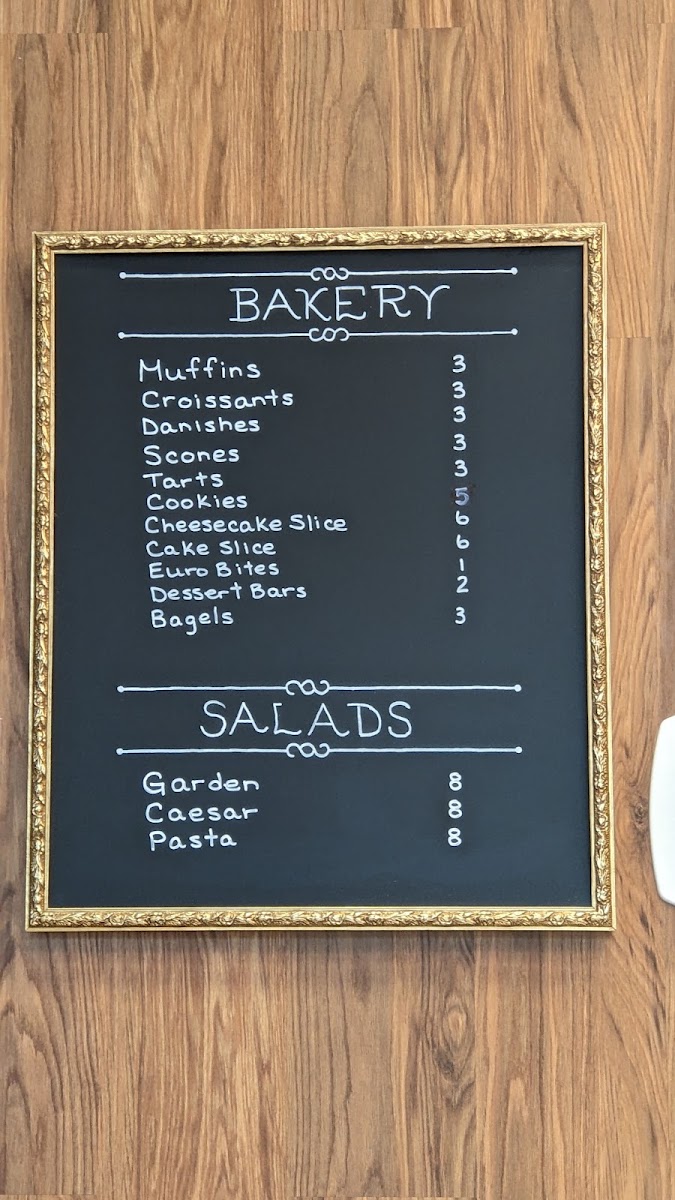 BAKERY
Muffins 3
Croissants 3
Danishes 3
Scones 3
Tarts 3
Cookies 5
Cheesecake Slice 6
Cake Slice 6
Euro Bites 1
Dessert Bars 2
Bagels 3
SALADS
Garden 8
Caesar 8
Pasta 8